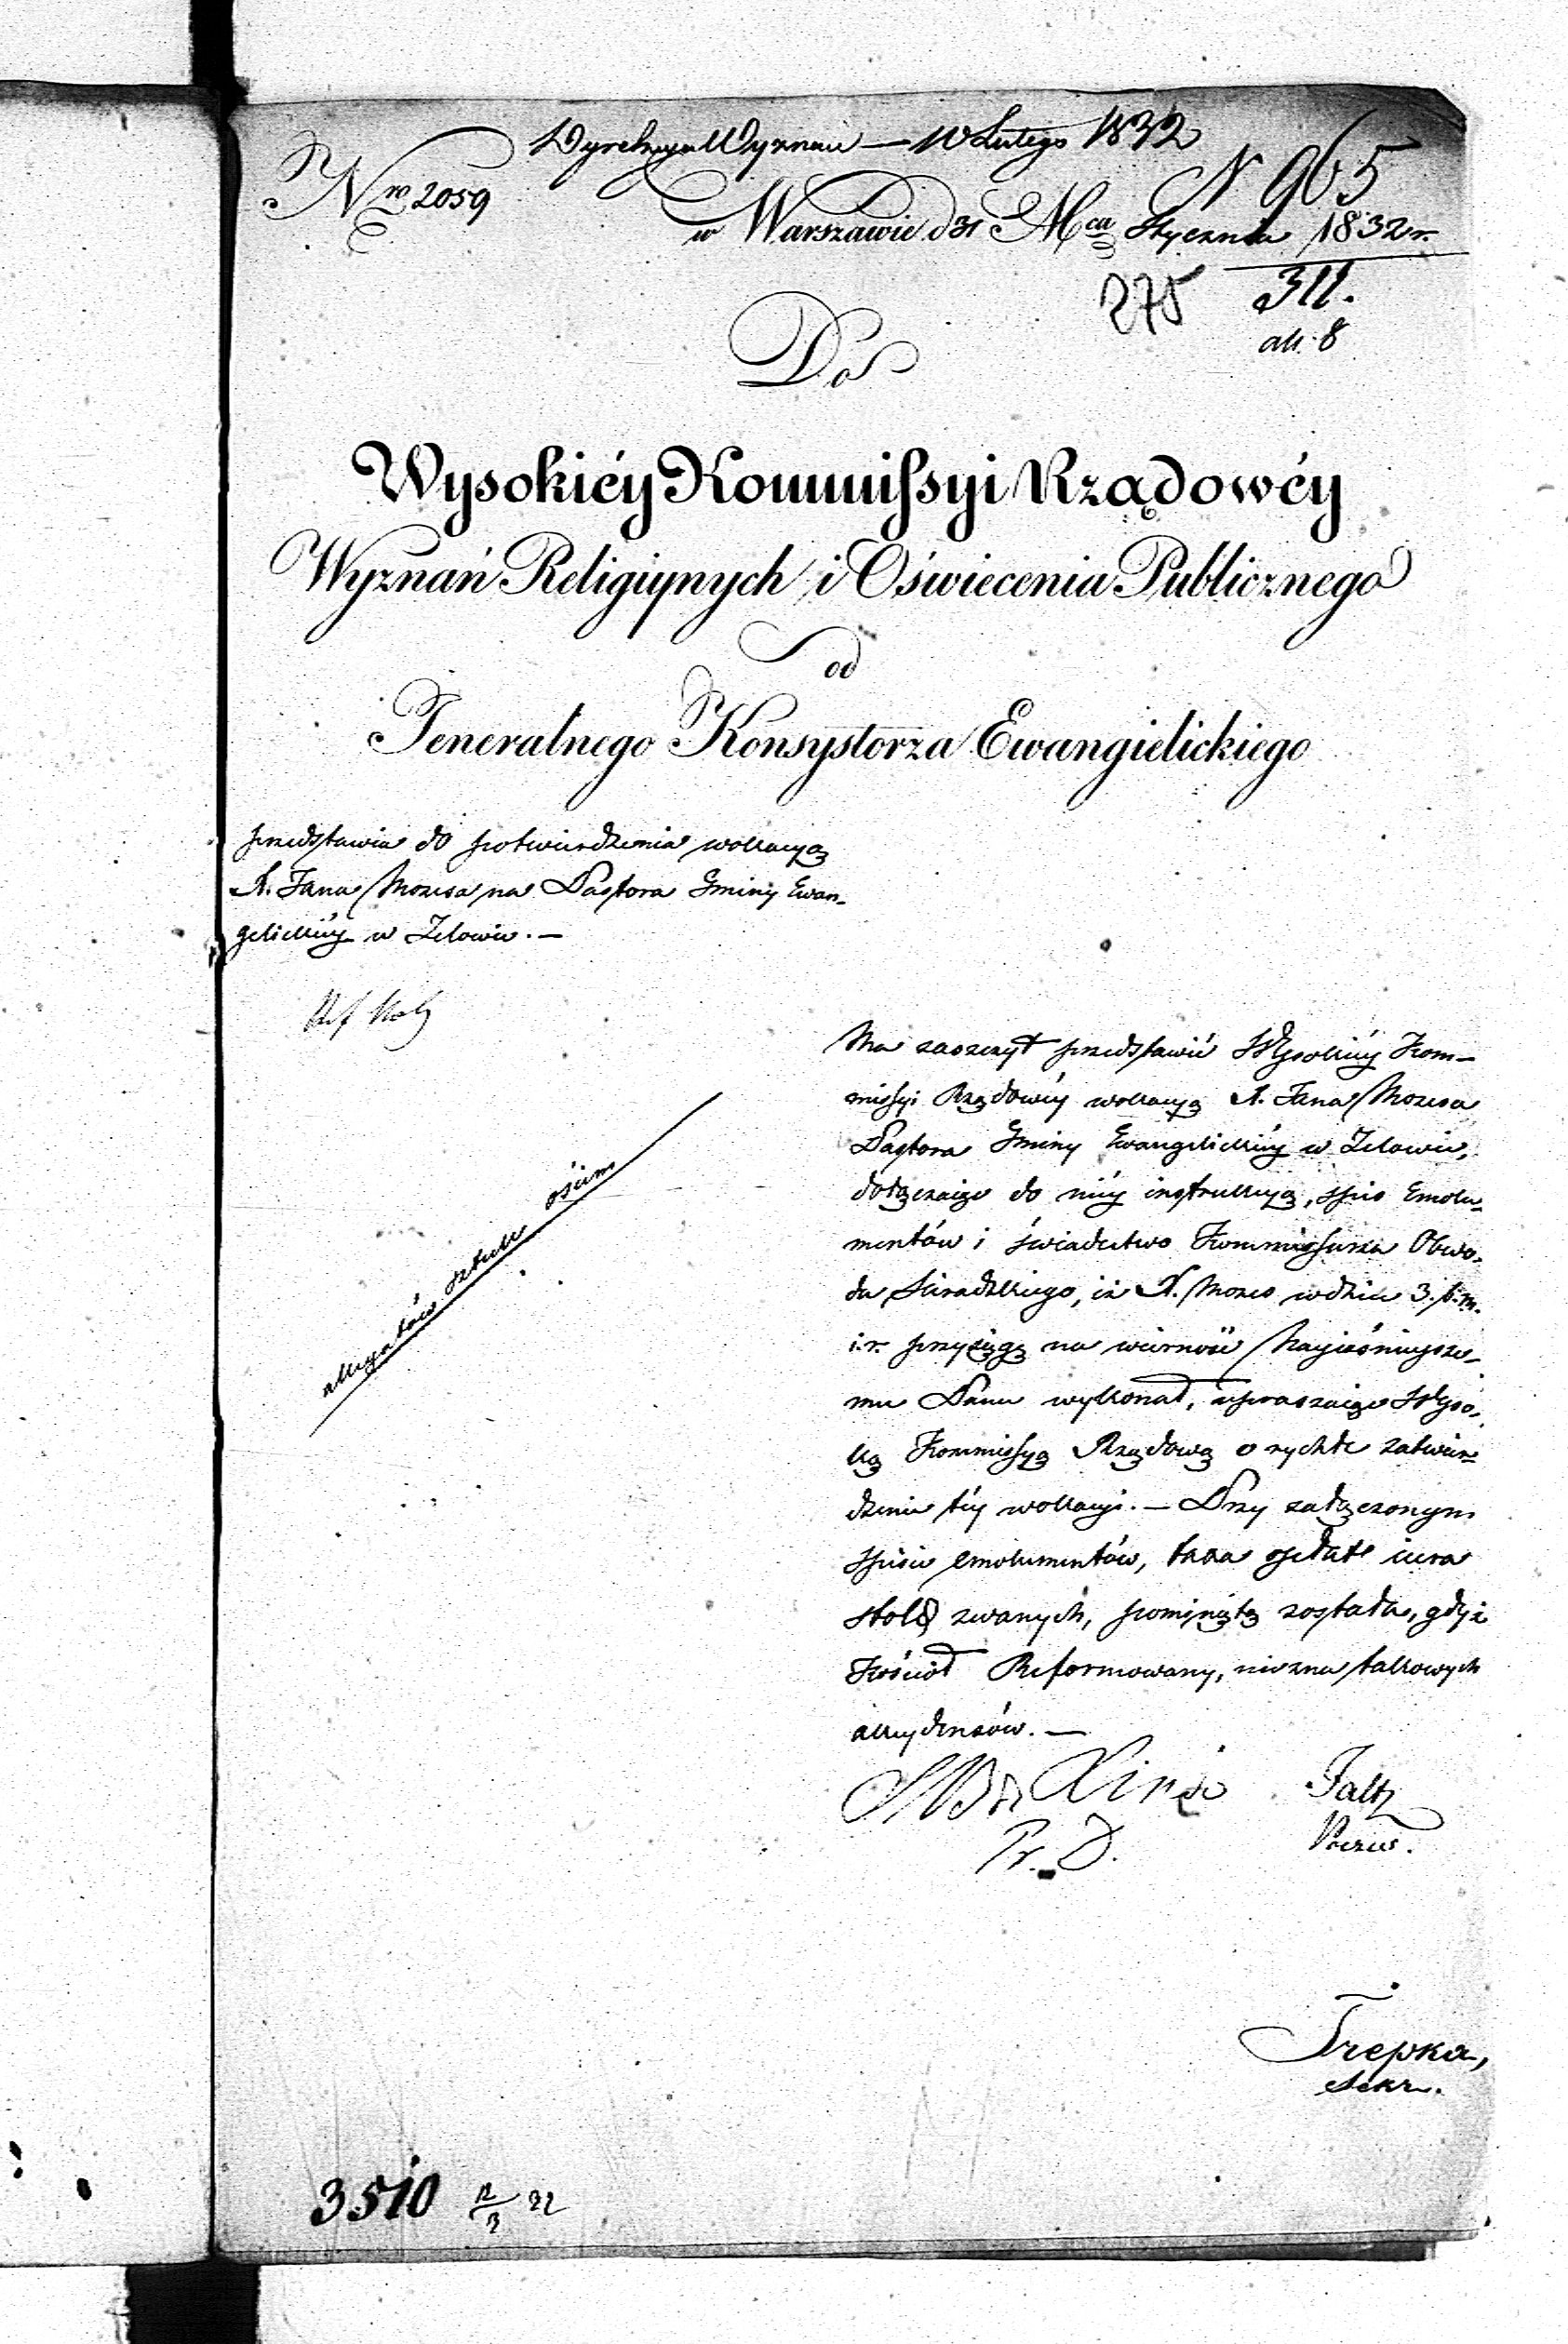 Dyrekcya Wyznań — 10 Lutego 1832
Nro 2059
N 965
w Warszawie d 31 Mca Stycznia 1832 r.
275 311.
all. 8
Do
Wysokiéy Kommissyi Rządowéy
Wyznań Religiynych i Oświecenia Publicznego
od
Jeneralnego Konsystorza Ewangielickiego
przedstawia do potwierdzenia wokacyą
X. Jana Mozesa na Pastora Gminy Ewan-
gelickiéy w Zelowie. —
Ma zaszczyt przedstawić Wysokiéy Kom-
missyi Rządowéy wokacyą X. Jana Mozesa
Pastora Gminy Ewangelickiéy w Zelowie,
dołączaiąc do niéy instrukcyą, spis Emolu-
mentów i świadectwo Kommissarza Obwo-
du Sieradzkiego, iż X. Mozes w dniu 3. b. m.
i. r. przysięgę na wierność Nayiaśnieysze-
mu Panu wykonał, upraszaiąc Wyso-
ką Kommissyą Rządową o rychłe zatwier-
dzenie téy wokacyi. — Przy załączonym
spisie emolumentów, taxa opłat iura
stolę zwanych, pominiętą została, gdyż
Kościół Reformowany, niezna takowych
akcydensów. —
allegatów sztuk ośiem
Pr. D.
Trepka,
Sekr.
3510 12/3 32